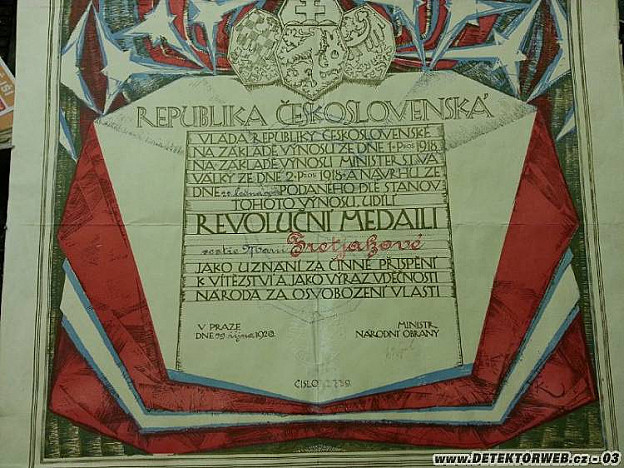 REPUBLIKA ČESKOSLOVENSKÁ
VLÁDA REPUBLIKY ČESKOSLOVENSKÉ
NA ZÁKLADĚ VÝNOSU ZE DNE 1·PROS·1918
NA ZÁKLADĚ VÝNOSU MINISTERSTVA
VÁLKY ZE DNE 2·PROS·1918·A NÁVRHU ZE
DNE PODANÉHO DLE STANOV
TOHOTO VÝNOSU, UDÍLÍ
REVOLUČNÍ MEDAILI
JAKO UZNÁNÍ ZA ČINNÉ PŘISPĚNÍ
K VÍTĚZSTVÍ A JAKO VÝRAZ VDĚČNOSTI
NÁRODA ZA OSVOBOZENÍ VLASTI
V PRAZE
DNE října 1920
MINISTR
NÁRODNÍ OBRANY
ČÍSLO
www.DETEKTORWEB.cz - 03